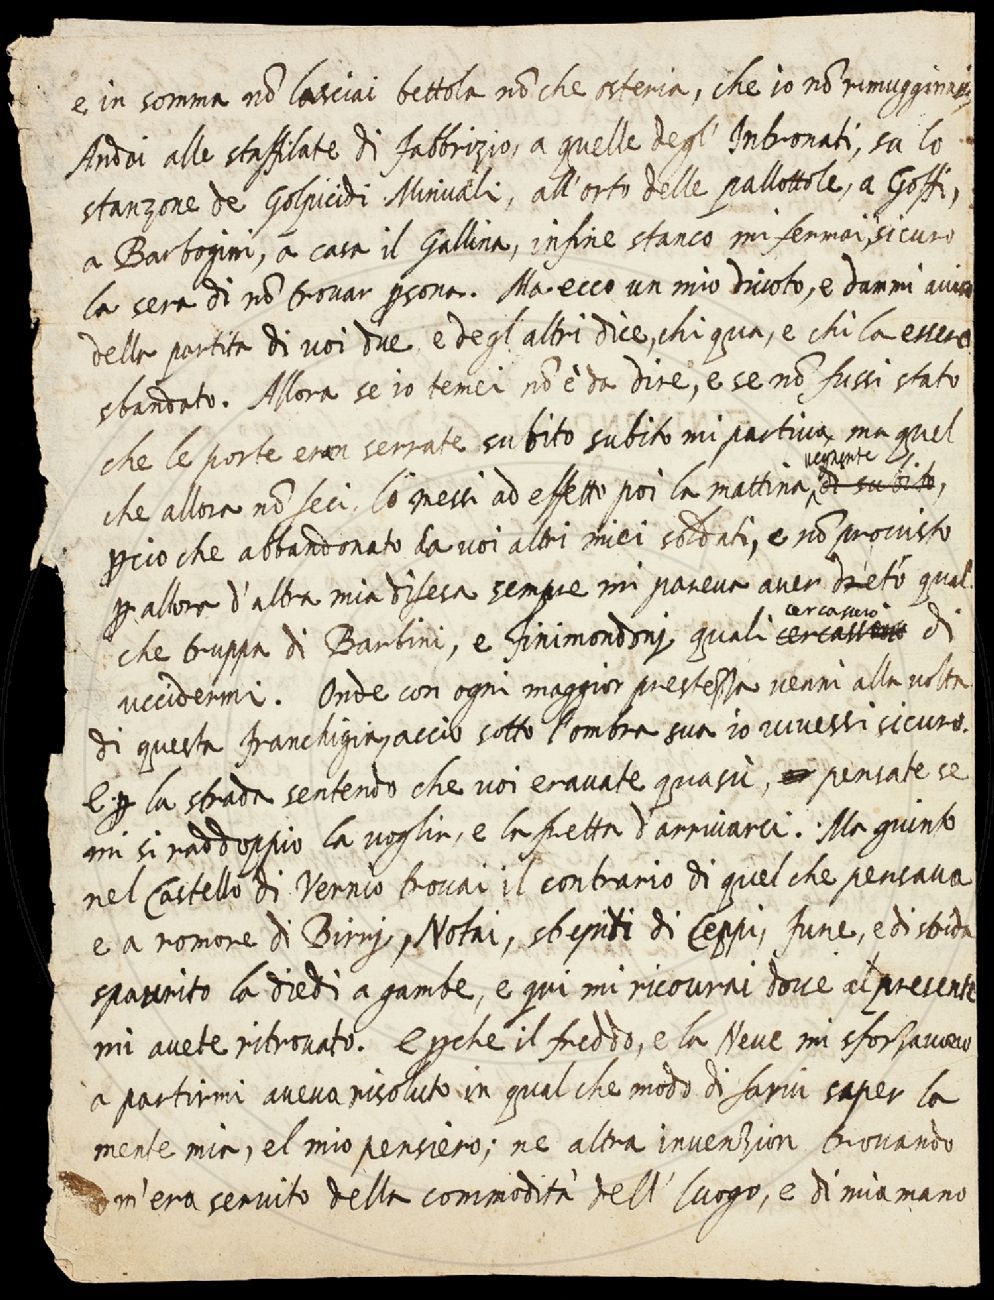 e in somma nõ lasciai bettola nõ che osteria, che io nõ rimuggina
Andai alle staffilate di Fabbrizio, a quelle degl' Intronati, su lo
stanzone de Golpicidi Minuali, all'orto delle pallottole, a Goffi,
a Barbogini, a casa il Gallina, infine stanco mi fermai, sicuro
la sera di nõ trovar psona. Ma ecco un mio divoto, e dammi aviso
della partita di voi due e degl altri dice, chi qua, e chi la essere
sbandato. Allora se io temei nõ è da dire, e se nõ fussi stato
che le porte eran serrate subito subito mi partiva, ma quel
vegnente
che allora nõ feci, lo messi ad effetto poi la mattina di subito,
pcio che abbandonato da voi altri miei soldati, e nõ provisto
p allora d'altra mia difesa sempre mi pareva aver drieto qual
cercasero
che truppa di Barbini, e Finimondonj, quali di
uccidermi. Onde con ogni maggior prestezza venni alla volta
di questa franchigia, accio sotto l'ombra sua io vivessi sicuro.
E p la strada sentendo che voi eravate quasù, pensate se
mi si raddoppio la voglia, e la fretta d'arrivarci. Ma giunto
nel Castello di Vernio trovai il contrario di quel che pensava
e a romore di Birrj, Notai, strepiti di Ceppi, fune, e di strida
spaurito la diedi a gambe, e qui mi ricovrai dove al presente
mi avete ritrovato. E pche il freddo, e la Neve mi sforzavano
a partirmi aveva risoluto in qual che modo di farvi saper la
mente mia, el mio pensiero; ne altra invenzion trovando
m'era servito della commodità dell' luogo, e di mia mano